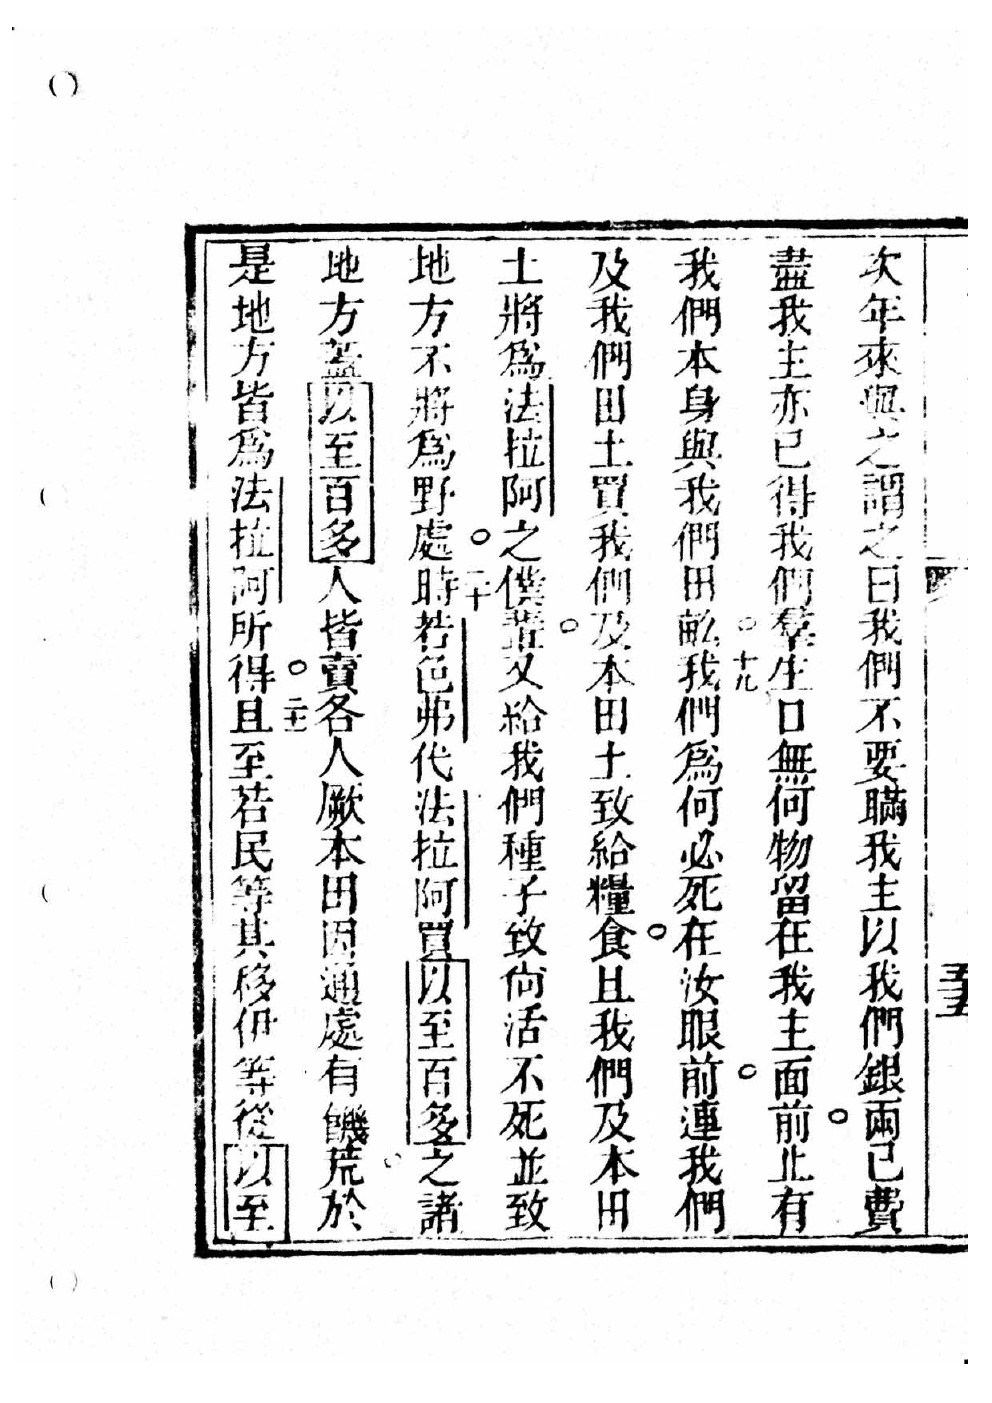 次年來與之謂之曰我們不要瞞我主以我們銀兩已費
盡我主亦已得我們羣生口無何物留在我主面前止有
我們本身與我們田畝○十九我們爲何必死在汝眼前連我們
及我們田土買我們及本田土致給糧食且我們及本田
土將爲法拉阿之僕輩又給我們種子致尙活不死並致
地方不將爲野處○二十時若色弗代法拉阿買以至百多之諸
地方蓋以至百多人皆賣各人厥本田因通處有饑荒於
是地方皆爲法拉阿所得○二十一且至若民等其移伊等從以至
五五